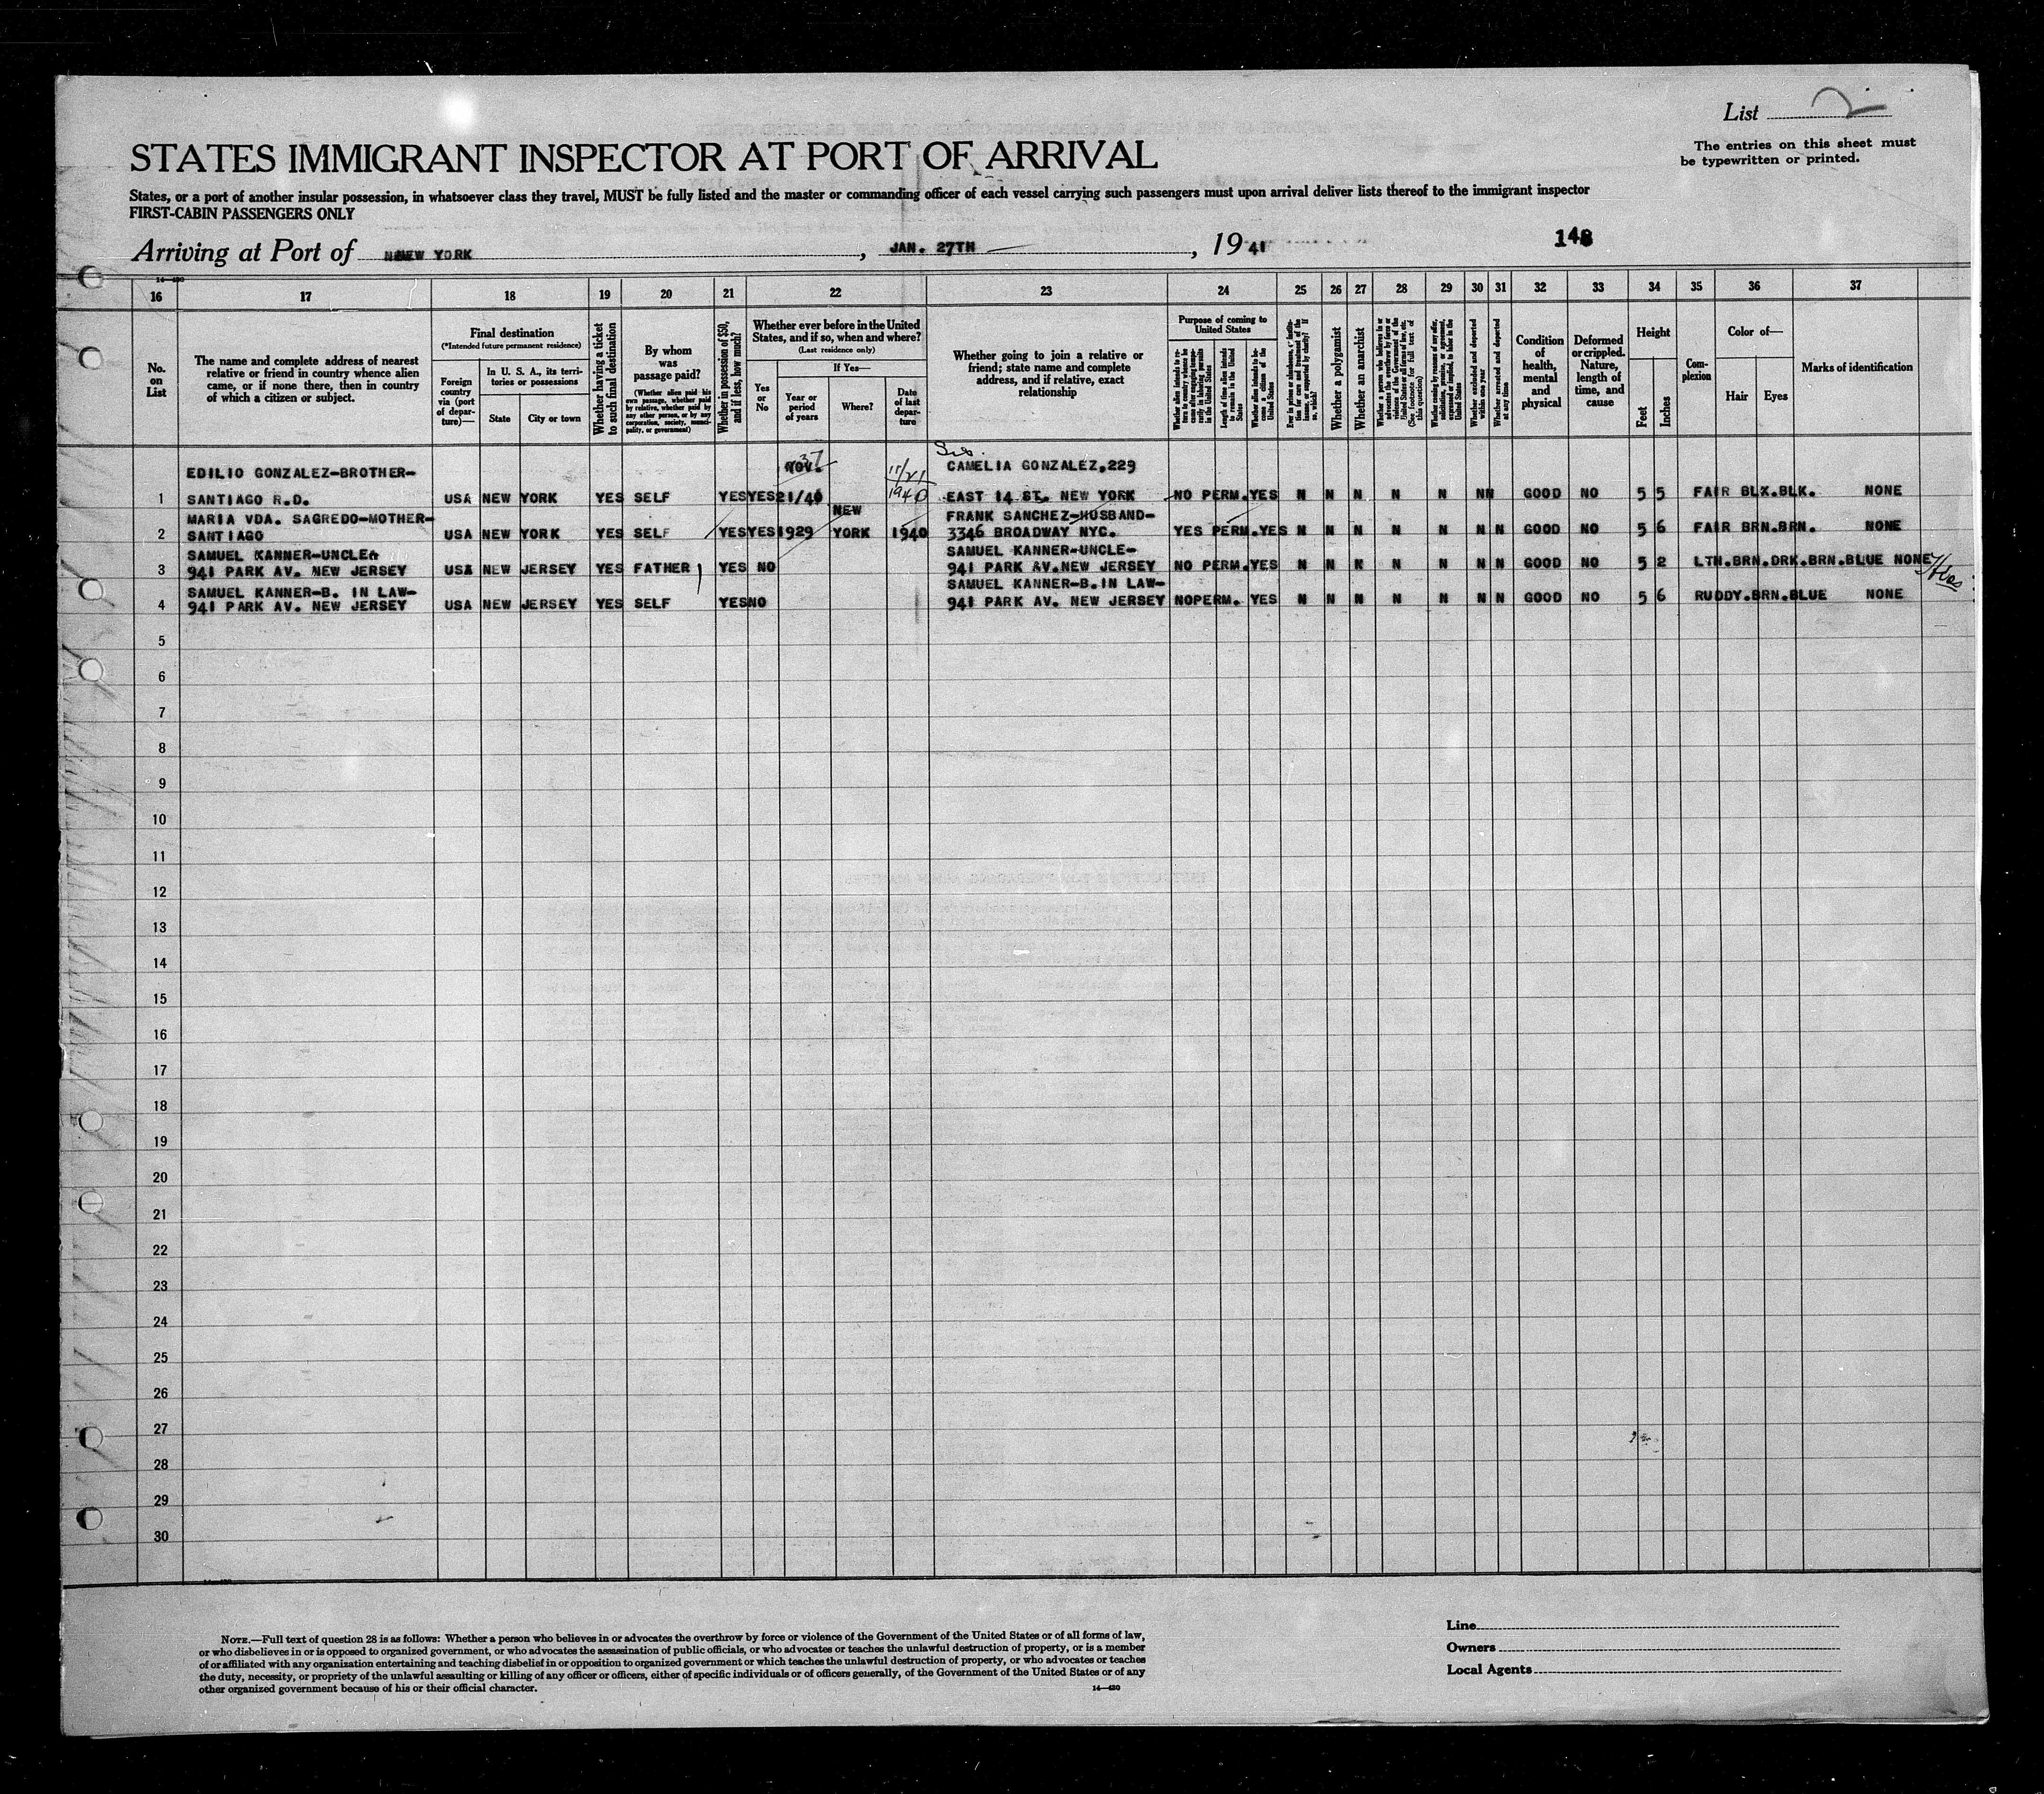 List 2
The entries on this sheet must
be typewritten or printed.
STATES IMMIGRANT INSPECTOR AT PORT OF ARRIVAL
States, or a port of another insular possession, in whatsoever class they travel, MUST be fully listed and the master or commanding officer of each vessel carrying such passengers must upon arrival deliver lists thereof to the immigrant inspector
FIRST-CABIN PASSENGERS ONLY
Arriving at Port of NEW YORK, JAN. 27TH, 1941
148
14—430
16 17 18 19 20 21 22 23 24 25 26 27 28 29 30 31 32 33 34 35 36 37
No.
on
List
The name and complete address of nearest
relative or friend in country whence alien
came, or if none there, then in country
of which a citizen or subject.
Final destination
(*Intended future permanent residence)
Foreign
country
via (port
of depar-
ture)—
In U. S. A., its terri-
tories or possessions
State
City or town
Whether having a ticket
to such final destination
By whom
was
passage paid?
(Whether alien paid his
own passage, whether paid
by relative, whether paid by
any other person, or by any
corporation, society, munici-
pality, or government)
Whether in possession of $50,
and if less, how much?
Whether ever before in the United
States, and if so, when and where?
(Last residence only)
Yes
or
No
If Yes—
Year or
period
of years
Where?
Date
of last
depar-
ture
Whether going to join a relative or
friend; state name and complete
address, and if relative, exact
relationship
Purpose of coming to
United States
Whether alien intends to re-
turn to country whence he
came after engaging tempo-
rarily in laboring pursuits
in the United States
Length of time alien intends
to remain in the United
States
Whether alien intends to be-
come a citizen of the
United States
Ever in prison or almshouse, or institu-
tion for care and treatment of the
insane, or supported by charity? If
so, which?
Whether a polygamist
Whether an anarchist
Whether a person who believes in or
advocates the overthrow by force or
violence of the Government of the
United States or all forms of law, etc.
(See footnote for full text of
this question)
Whether coming by reason of any offer,
solicitation, promise, or agreement,
expressed or implied, to labor in the
United States
Whether excluded and deported
within one year
Whether arrested and deported
at any time
Condition
of
health,
mental
and
physical
Deformed
or crippled.
Nature,
length of
time, and
cause
Height
Feet
Inches
Com-
plexion
Color of—
Hair
Eyes
Marks of identification
EDILIO GONZALEZ-BROTHER- NOV. 37 11/21 Sis. CAMELIA GONZALEZ,229
1 SANTIAGO R.D. USA NEW YORK YES SELF YES YES 21/40 1940 EAST 14 ST. NEW YORK NO PERM. YES N N N N N N N GOOD NO 5 5 FAIR BLK.BLK. NONE
MARIA VDA. SAGREDO-MOTHER- NEW FRANK SANCHEZ-HUSBAND-
2 SANTIAGO USA NEW YORK YES SELF YES YES 1929 YORK 1940 3346 BROADWAY NYC. YES PERM. YES N N N N N N N GOOD NO 5 6 FAIR BRN.BRN. NONE
SAMUEL KANNER-UNCLE- SAMUEL KANNER-UNCLE-
3 941 PARK AV. NEW JERSEY USA NEW JERSEY YES FATHER YES NO 941 PARK AV.NEW JERSEY NO PERM. YES N N N N N N N GOOD NO 5 2 LTH.BRN.DRK.BRN.BLUE NONE
SAMUEL KANNER-B. IN LAW- SAMUEL KANNER-B.IN LAW-
4 941 PARK AV. NEW JERSEY USA NEW JERSEY YES SELF YES NO 941 PARK AV. NEW JERSEY NO PERM. YES N N N N N N N GOOD NO 5 6 RUDDY.BRN.BLUE NONE
5
6
7
8
9
10
11
12
13
14
15
16
17
18
19
20
21
22
23
24
25
26
27
28
29
30
NOTE.—Full text of question 28 is as follows: Whether a person who believes in or advocates the overthrow by force or violence of the Government of the United States or of all forms of law,
or who disbelieves in or is opposed to organized government, or who advocates the assassination of public officials, or who advocates or teaches the unlawful destruction of property, or is a member
of or affiliated with any organization entertaining and teaching disbelief in or opposition to organized government or which teaches the unlawful destruction of property, or who advocates or teaches
the duty, necessity, or propriety of the unlawful assaulting or killing of any officer or officers, either of specific individuals or of officers generally, of the Government of the United States or of any
other organized government because of his or their official character.
14—430
Line
Owners
Local Agents